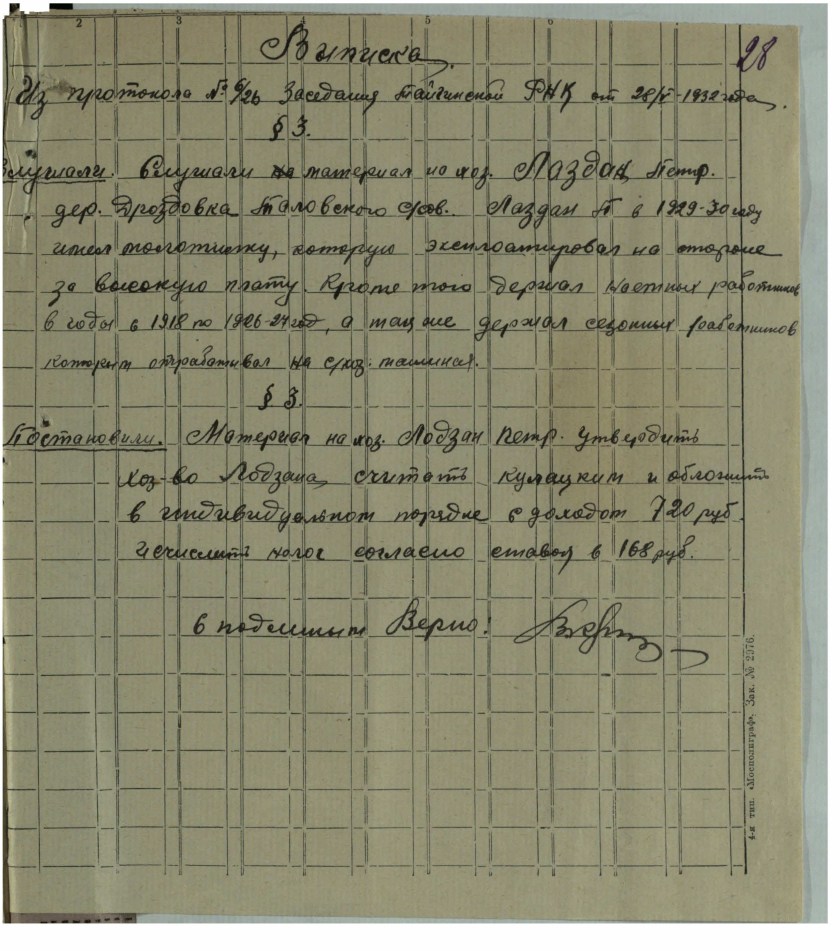 2 3 4 5 6
28
Выписка.
Из протокола № 6/26 Заседания Тайгинской РНК от 28/V-1932 года.
§ 3.
Слушали. Слушали материал на хоз. Лаздан Петр.
дер. Дроздовка Таловского с/сов. Лаздан П в 1929-30 году
имел молотилку, которую эксплоатировал на стороне
за высокую плату. Кроме того держал наемных работников
в годы с 1918 по 1926-27 год, а так же держал сезонных работников
которым отрабатывал на с/хоз. машинах.
§ 3.
Постановили. Материал на хоз. Лодзан Петр. Утвердить
хоз-во Лодзана, считать кулацким и обложить
в индивидуальном порядке с доходом 720 руб.
исчислить налог согласно ставок в 168 руб.
с подлиным Верно!
4-я тип. «Мосполиграф». Зак. № 2976.